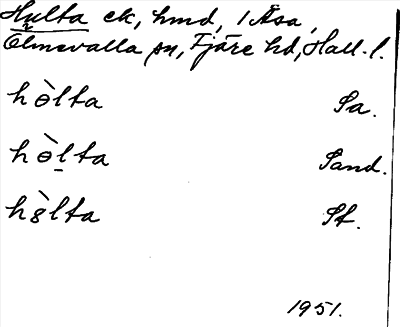 Hulta ek, hmd, 1 Åsa,
Ölmevalla sn, Fjäre hd, Hall. l.
hòlta Sa.
hòlta Sand.
hòlta St.
1951.